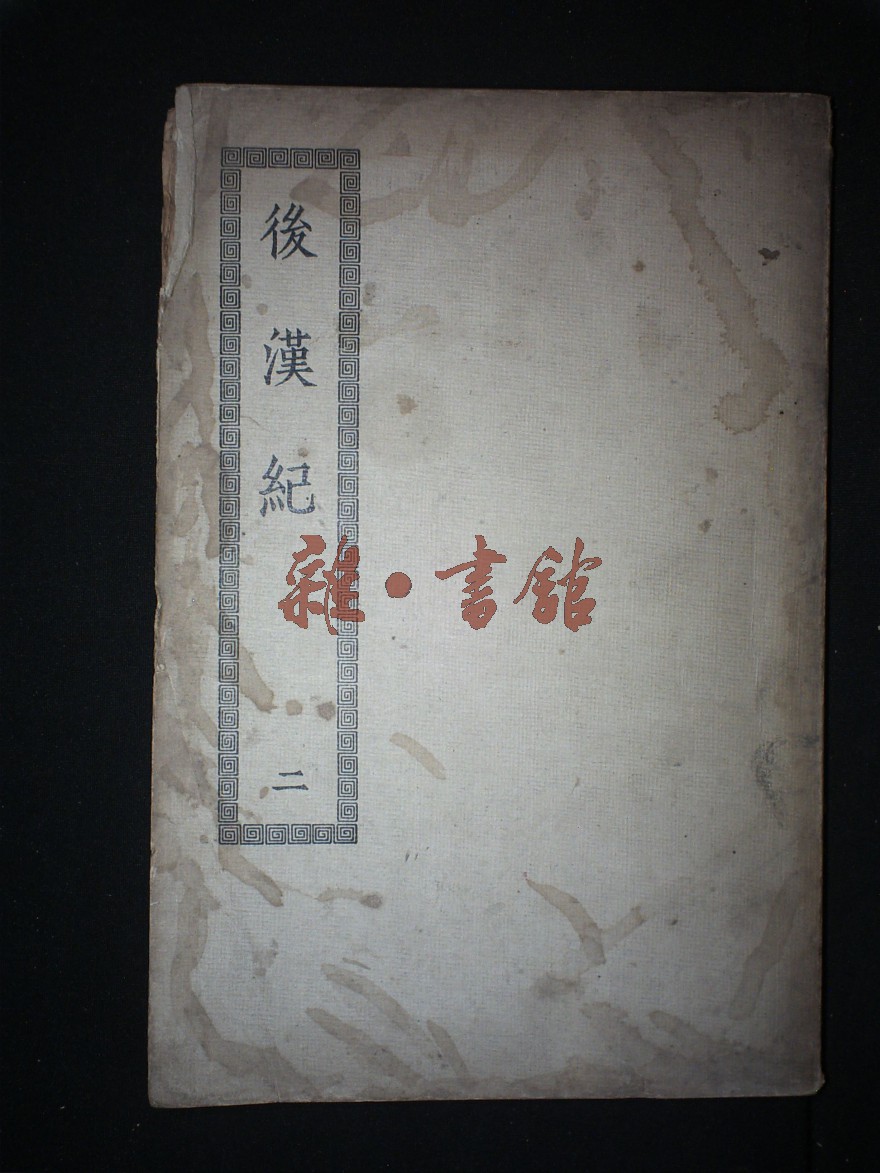 後漢紀
二
雜·書館